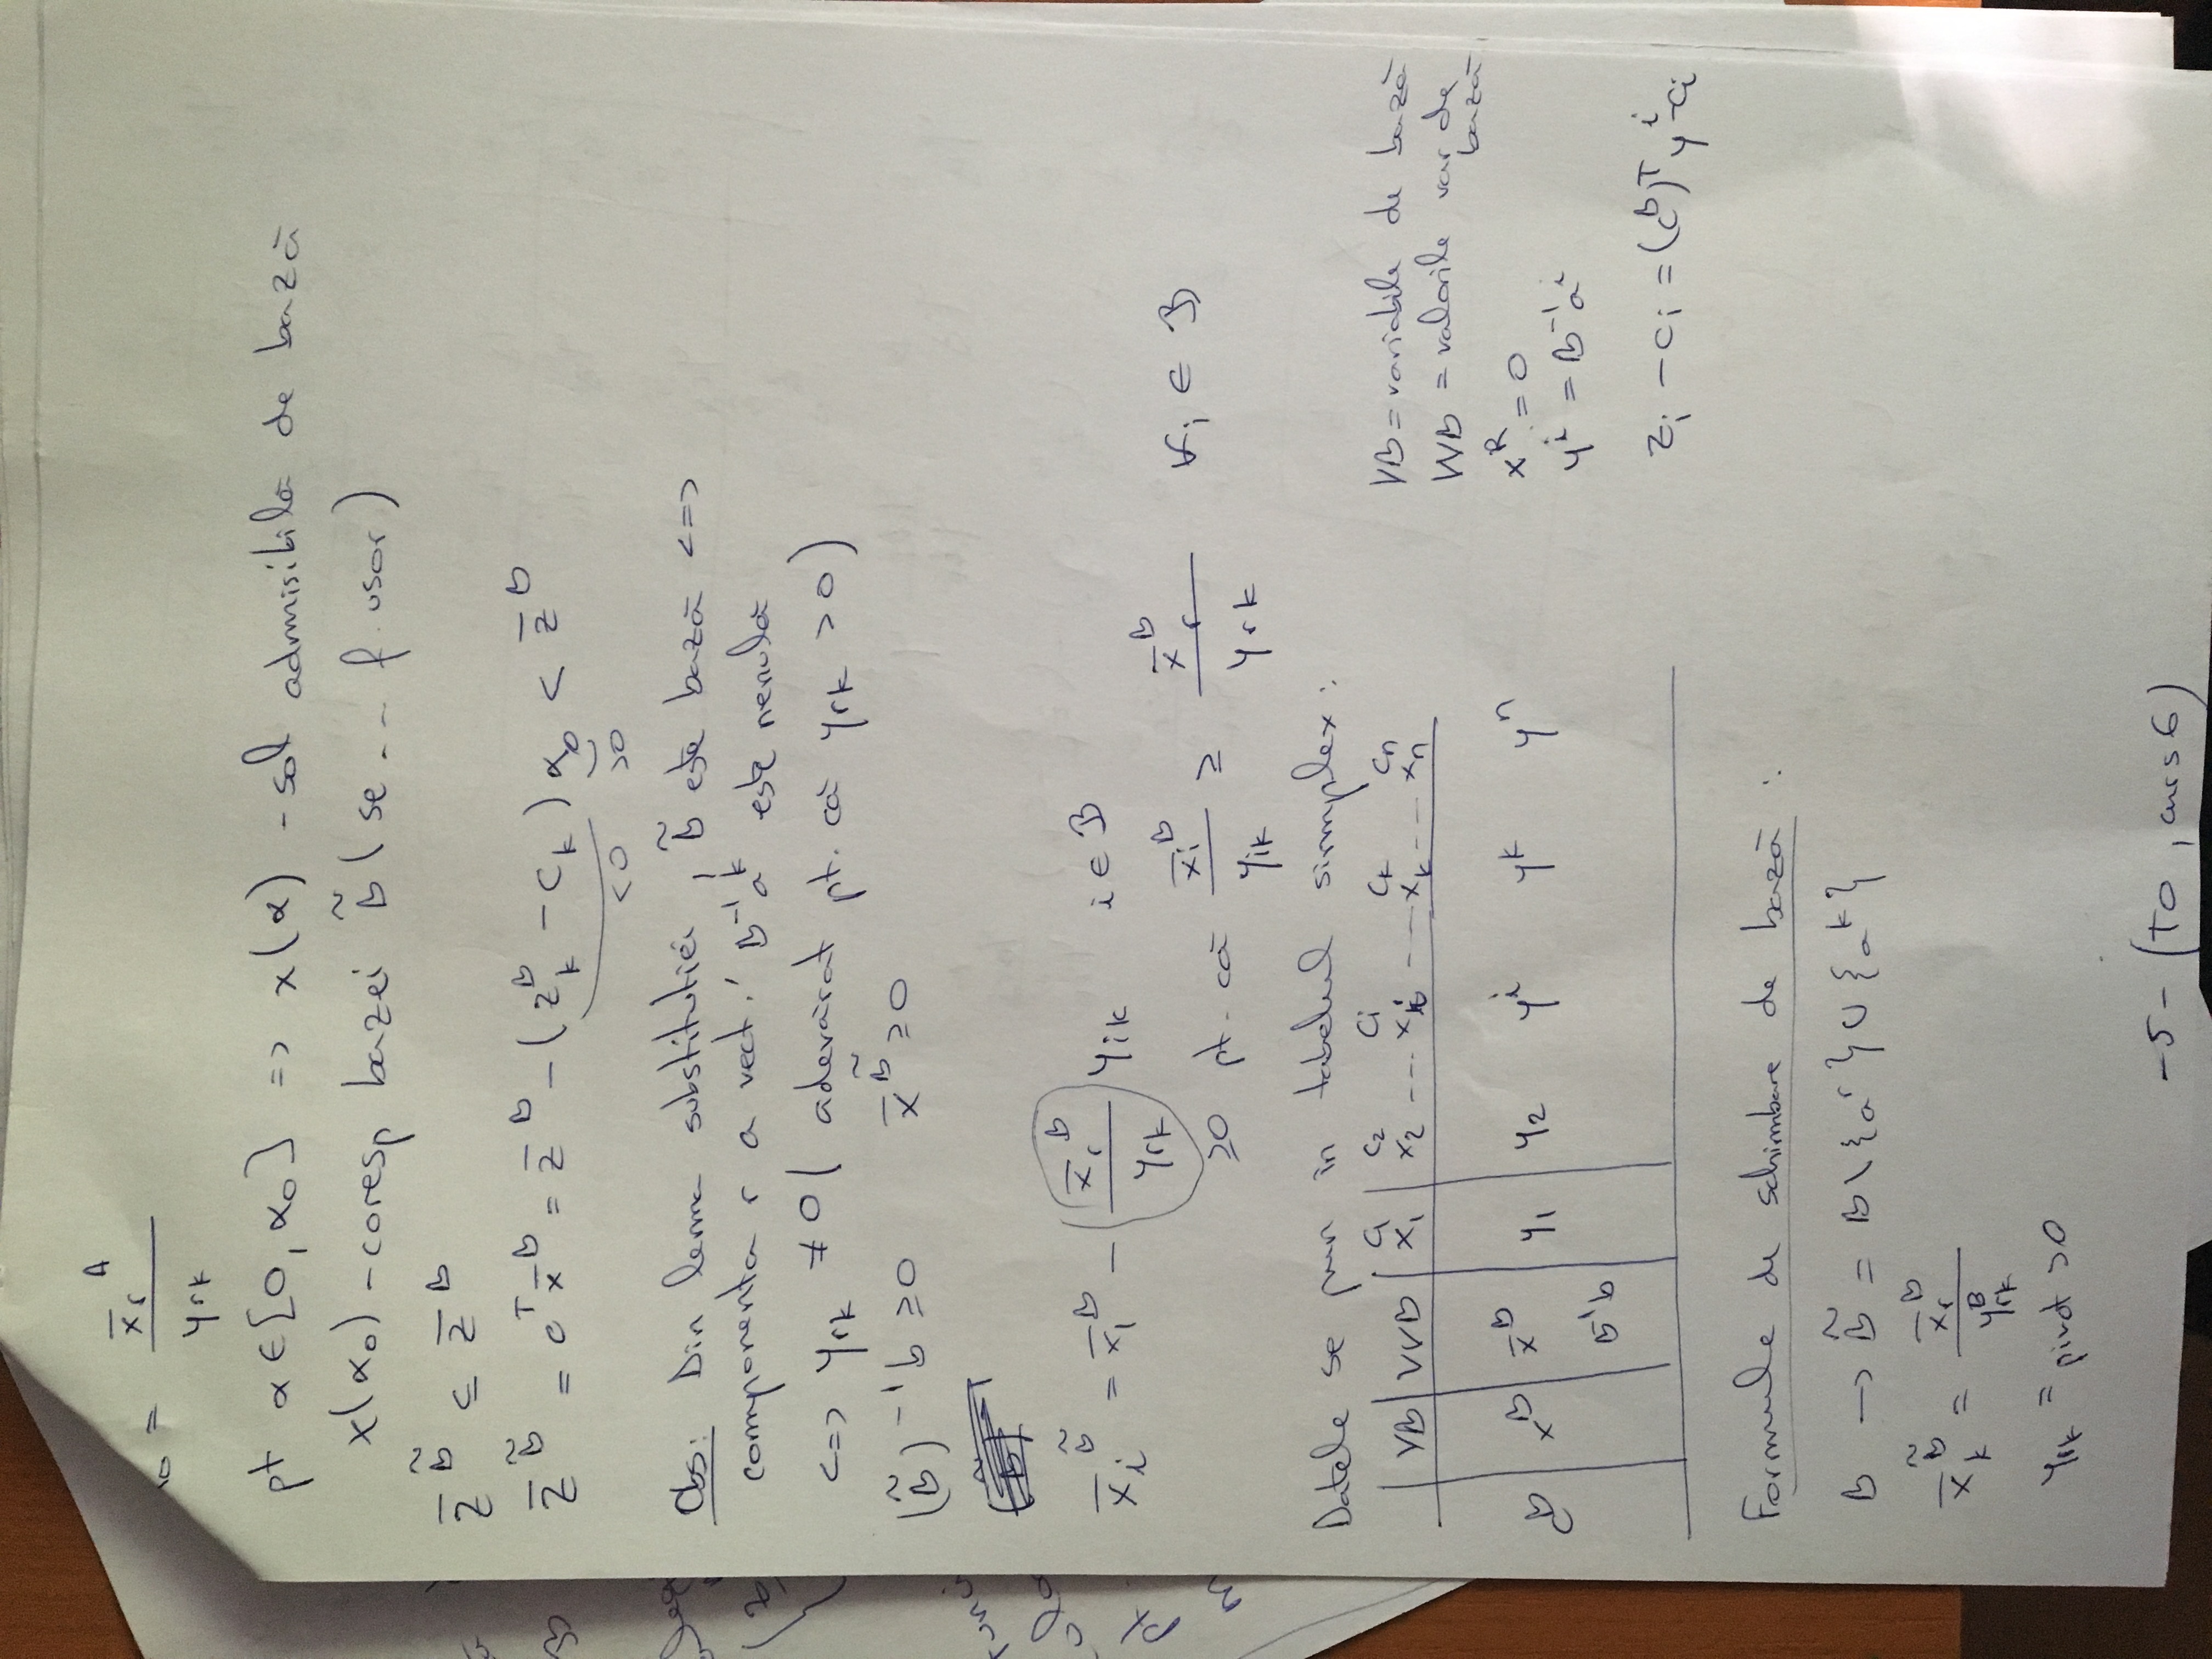 = x̄_r^B / y_rk
pt α ∈ [0, α₀] => x(α) - sol admisibilă de bază
x(α₀) - coresp bazei B̃ (se ... f. usor)
z̄^B̃ ≤ z̄^B
z̄^B̃ = c^T x̄^B̃ = z̄^B - (z_k^B - c_k) α₀ < z̄^B
<0 >0
Obs: Din lema substituției, B̃ este bază <=>
componenta r a vect. B⁻¹a^k este nenulă
<=> y_rk ≠ 0 (adevărat pt. că y_rk > 0)
(B̃)⁻¹b ≥ 0 x̄^B̃ ≥ 0
x̄_i^B̃ = x̄_i^B - (x̄_r^B / y_rk) y_ik i ∈ B
≥0 pt. că x̄_i^B / y_ik ≥ x̄_r^B / y_rk ∀ i ∈ B
Datele se pun in tabelul simplex:
c₁ c₂ c_i c_k c_n
VB VVB x₁ x₂ --- x_i --- x_k --- x_n
B x^B x̄^B y₁ y₂ y^i y^k y^n
B⁻¹b
VB = variabile de bază
VVB = valorile var de bază
x^R = 0
y^i = B⁻¹a^i
z_i - c_i = (c^B)^T y^i - c_i
Formule de schimbare de bază:
B -> B̃ = B \ {a^r} ∪ {a^k}
x̄_k^B̃ = x̄_r^B / y_rk^B
y_rk = pivot > 0
- 5 - (TO, curs 6)